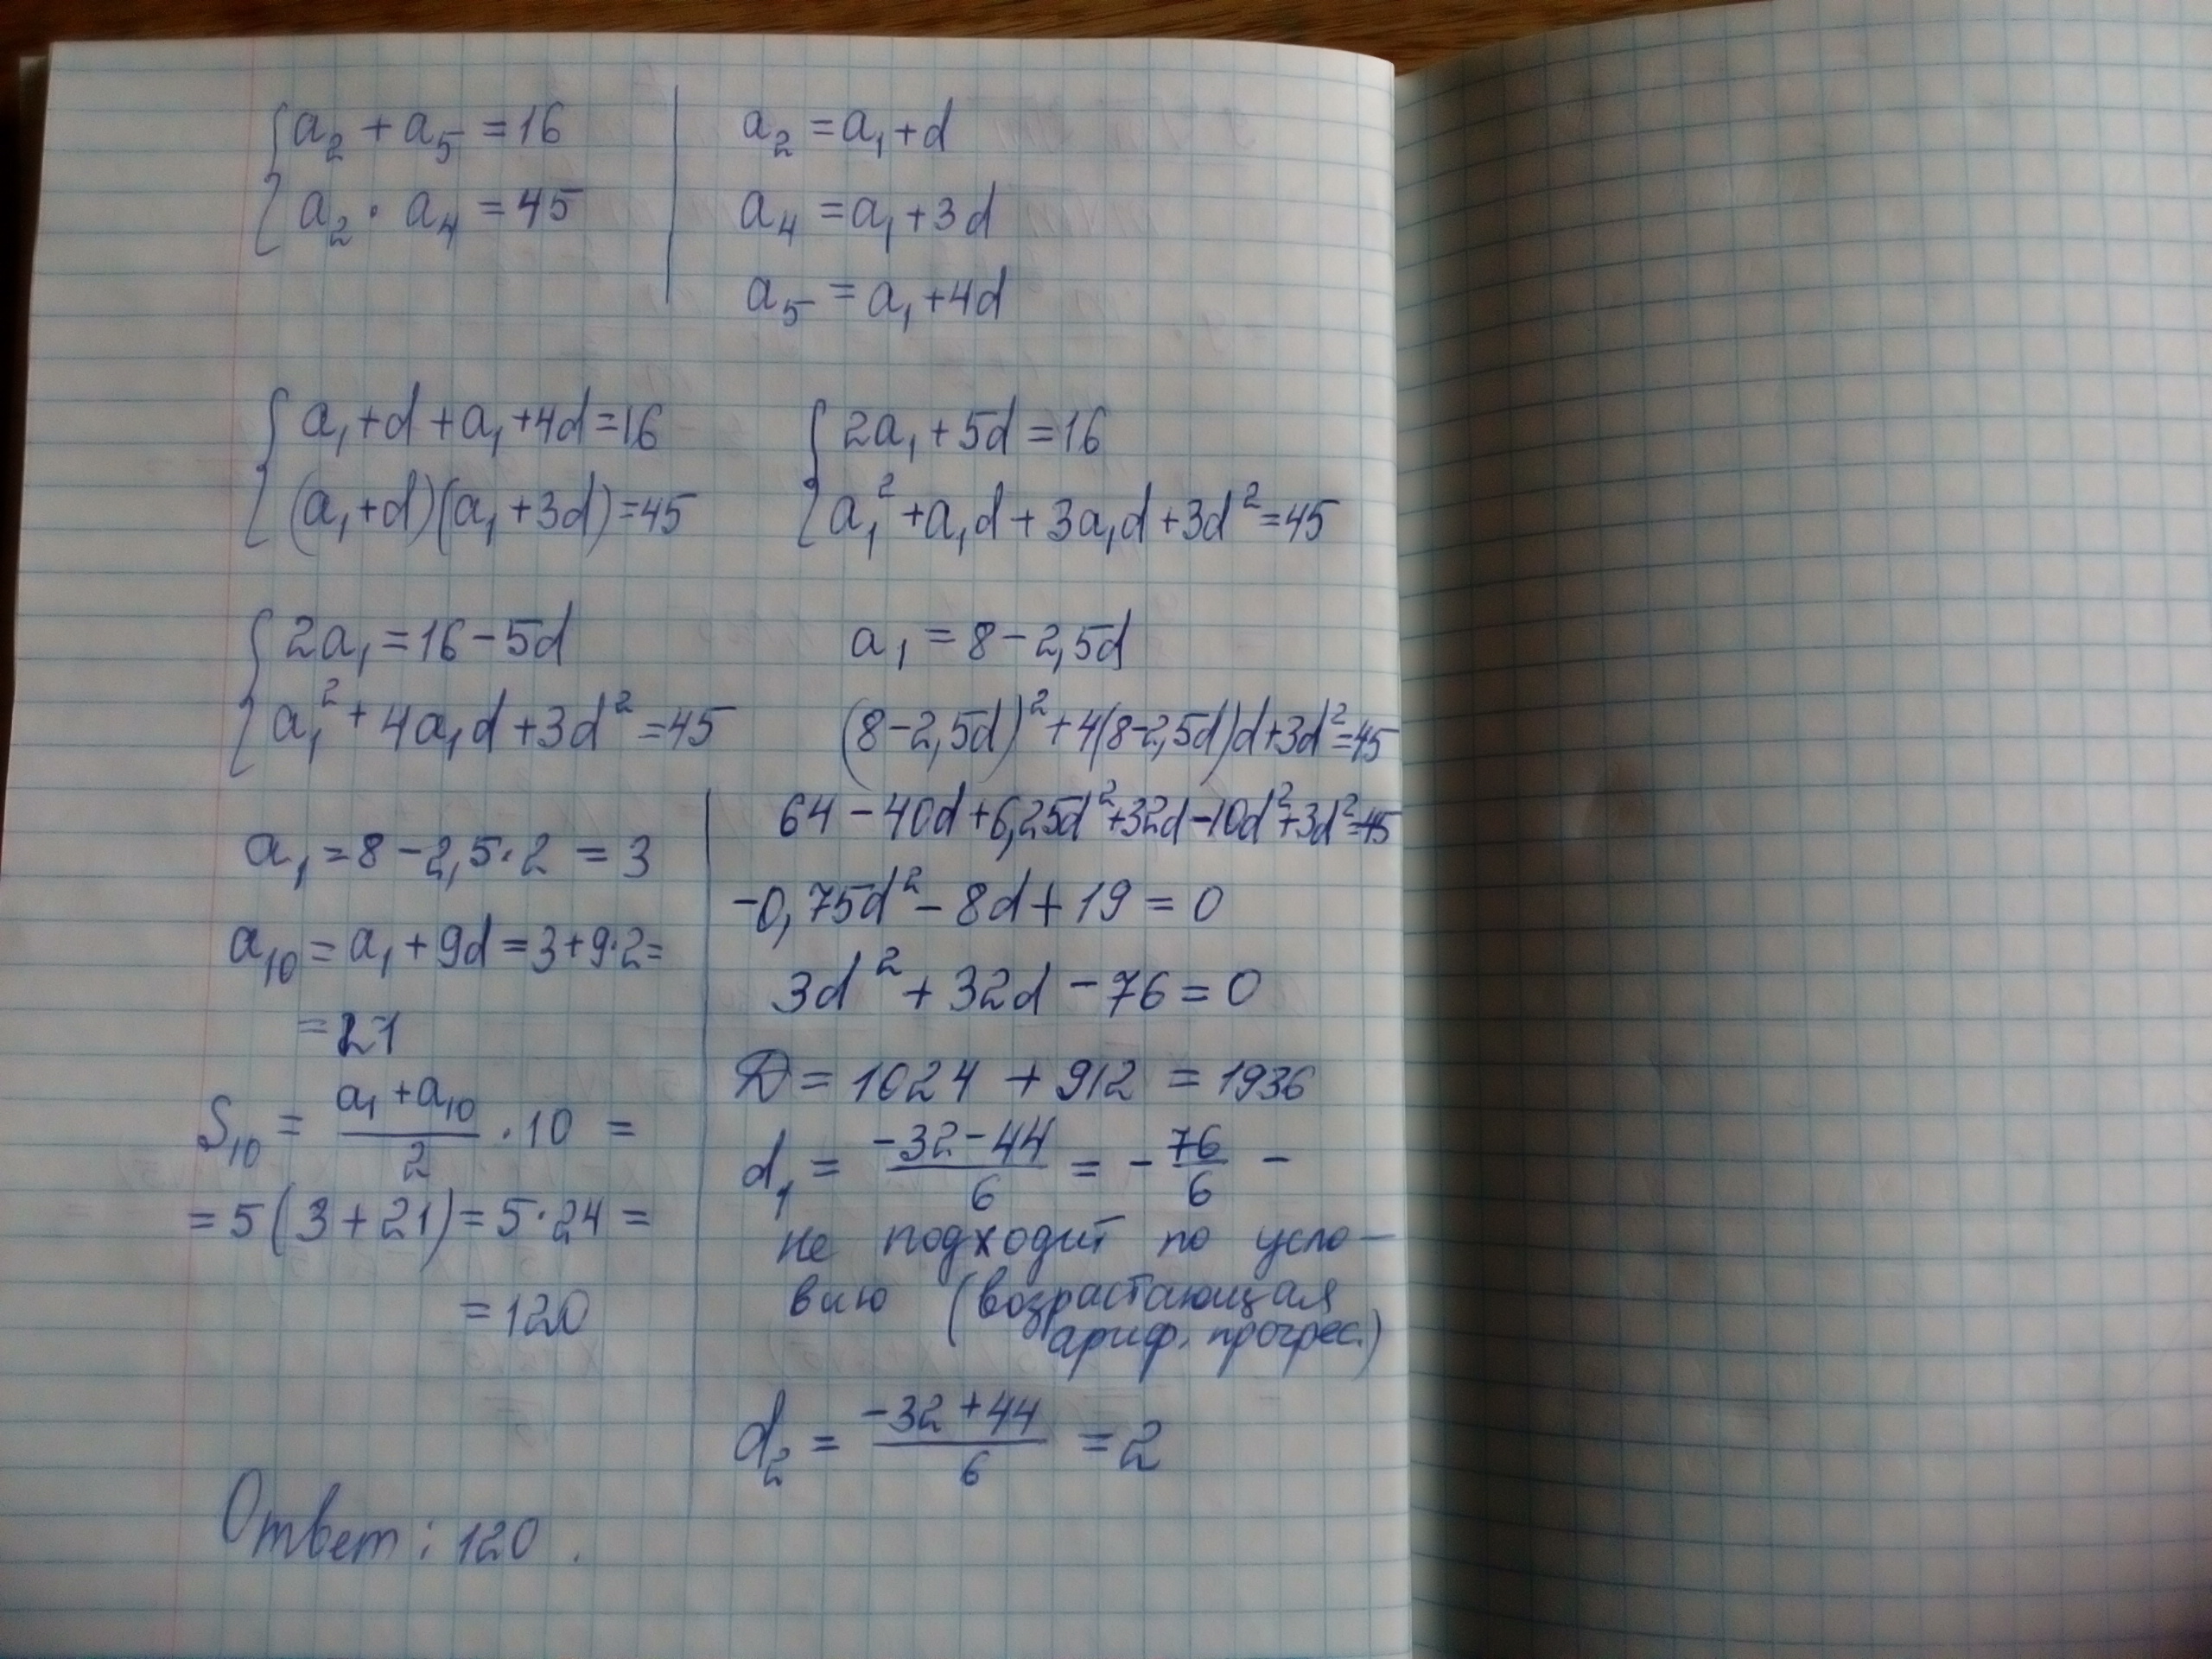 {a₂ + a₅ = 16
{a₂ · a₄ = 45
a₂ = a₁ + d
a₄ = a₁ + 3d
a₅ = a₁ + 4d
{a₁ + d + a₁ + 4d = 16
{(a₁ + d)(a₁ + 3d) = 45
{2a₁ + 5d = 16
{a₁² + a₁d + 3a₁d + 3d² = 45
{2a₁ = 16 - 5d
{a₁² + 4a₁d + 3d² = 45
a₁ = 8 - 2,5d
(8 - 2,5d)² + 4(8 - 2,5d)d + 3d² = 45
64 - 40d + 6,25d² + 32d - 10d² + 3d² = 45
-0,75d² - 8d + 19 = 0
3d² + 32d - 76 = 0
D = 1024 + 912 = 1936
d₁ = (-32 - 44)/6 = -76/6 -
не подходит по усло-
вию (возрастающая
ариф. прогрес.)
d₂ = (-32 + 44)/6 = 2
a₁ = 8 - 2,5·2 = 3
a₁₀ = a₁ + 9d = 3 + 9·2 =
= 21
S₁₀ = (a₁ + a₁₀)/2 · 10 =
= 5(3 + 21) = 5·24 =
= 120
Ответ: 120.